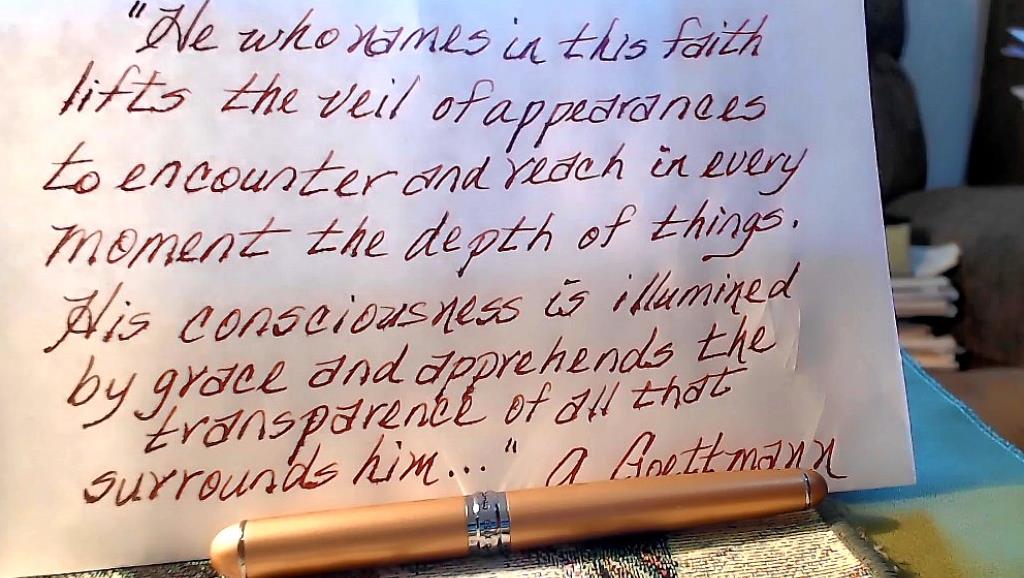 "He who names in this faith
lifts the veil of appearances
to encounter and reach in every
moment the depth of things.
His consciousness is illumined
by grace and apprehends the
transparence of all that
surrounds him..." A Goettmann